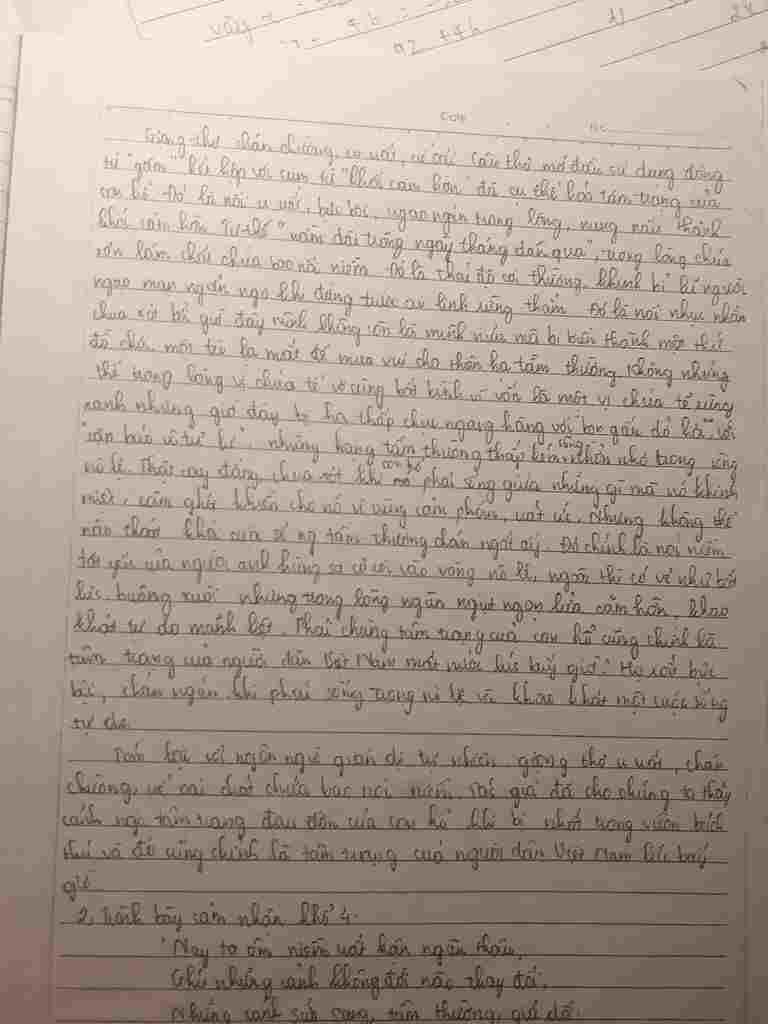 vậy
92 + 4h
24
Giọng thơ chán chường, u uất, câu thơ mở đầu sử dụng động
từ "gậm" kết hợp với cụm từ "khối căm hờn" đã cụ thể hoá tâm trạng của
con hổ. Đó là nỗi u uất, bực bội, ngao ngán trong lòng, nung nấu thành
khối căm hờn. Tư thế "nằm dài trông ngày tháng dần qua", trong lòng chúa
sơn lâm chất chứa bao nỗi niềm. Đó là thái độ coi thường, khinh bỉ lũ người
ngạo mạn ngẩn ngơ khi đứng trước oai linh rừng thẳm. Đó là nỗi nhục nhằn
chua xót bởi giờ đây mình không còn là mình nữa mà bị biến thành một thứ
đồ chơi, một trò lạ mắt để mua vui cho thiên hạ tầm thường. Không những
thế trong lòng vị chúa tể vô cùng bất bình vì vốn là một vị chúa tể rừng
xanh nhưng giờ đây bị hạ thấp chịu ngang hàng với "bọn gấu dở hơi", với
"cặp báo vô tư lự", những hạng tầm thường thấp kém, nhỏ trong sống
nô lệ. Thật cay đắng, chua xót khi con hổ phải sống giữa những gì mà nó khinh
miệt, căm ghét khiến cho nó vô cùng căm phẫn, uất ức. Nhưng không thể
nào thoát khỏi cuộc sống tầm thường chán ngắt ấy. Đó chính là nỗi niềm
tất yếu của người anh hùng sa cơ rơi vào vòng nô lệ, ngoài thì có vẻ như bất
lực, buông xuôi nhưng trong lòng ngùn ngụt ngọn lửa căm hờn, khao
khát tự do mãnh liệt. Phải chăng tâm trạng của con hổ cũng chính là
tâm trạng của người dân Việt Nam mất nước lúc bấy giờ? Họ rất bực
bội, chán ngán khi phải sống trong nô lệ và khao khát một cuộc sống
tự do.
Tóm lại với ngôn ngữ giản dị tự nhiên, giọng thơ u uất, chán
chường, chứa bao nỗi niềm, tác giả đã cho chúng ta thấy
cảnh ngộ tâm trạng đau đớn của con hổ khi bị nhốt trong vườn bách
thú và đó cũng chính là tâm trạng của người dân Việt Nam lúc bấy
giờ.
2, Trình bày cảm nhận khổ 4.
"Nay ta ôm niềm uất hận ngàn thâu,
Ghét những cảnh không đời nào thay đổi,
Những cảnh sửa sang, tầm thường, giả dối.